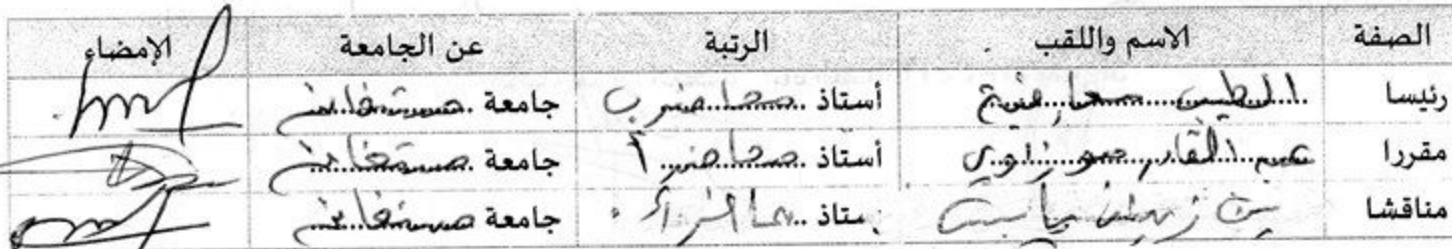 الصفة الاسم واللقب الرتبة عن الجامعة الإمضاء
رئيسا الطيب أستاذ محاضر ب جامعة مستغانم
مقررا عبد القادر بوزاوي أستاذ محاضر أ جامعة مستغانم
مناقشا بن زيدان أستاذ محاضر أ جامعة مستغانم